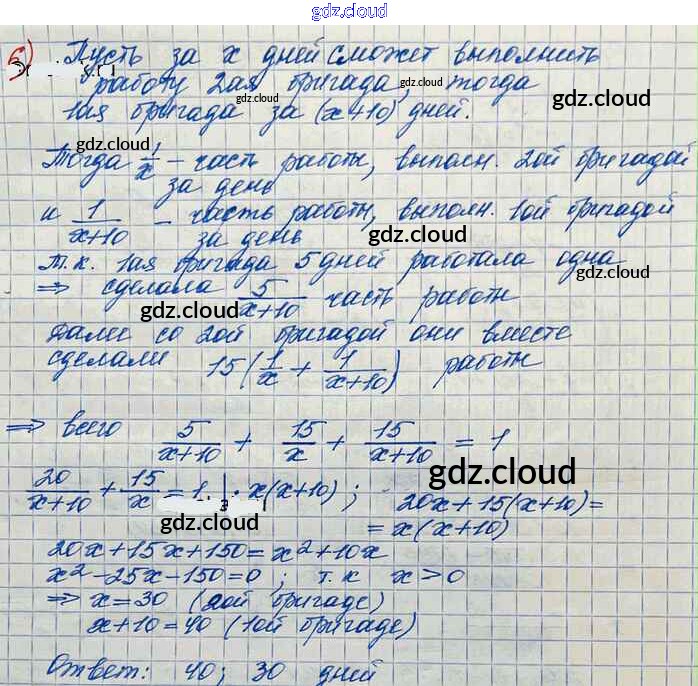 gdz.cloud
6) Пусть за x дней сможет выполнить
работу 2ая бригада, gdz.cloud тогда
1ая бригада gdz.cloud за (x+10) дней. gdz.cloud
gdz.cloud
Тогда 1/x - часть работы, выполн. 2ой бригадой
за день
и 1/(x+10) - часть работы, выполн. 1ой бригадой
за день gdz.cloud
т.к. 1ая бригада 5 дней работала одна
gdz.cloud
⇒ сделала 5/(x+10) часть работы
gdz.cloud
далее со 2ой бригадой они вместе
сделали 15(1/x + 1/(x+10)) работы
⇒ всего 5/(x+10) + 15/x + 15/(x+10) = 1
gdz.cloud
20/(x+10) + 15/x = 1 | · x(x+10) ; 20x+15(x+10)=
gdz.cloud = x(x+10)
20x+15x+150=x²+10x
x²-25x-150=0 ; т.к x>0
⇒ x=30 (2ой бригаде)
x+10=40 (1ой бригаде)
Ответ: 40; 30 дней